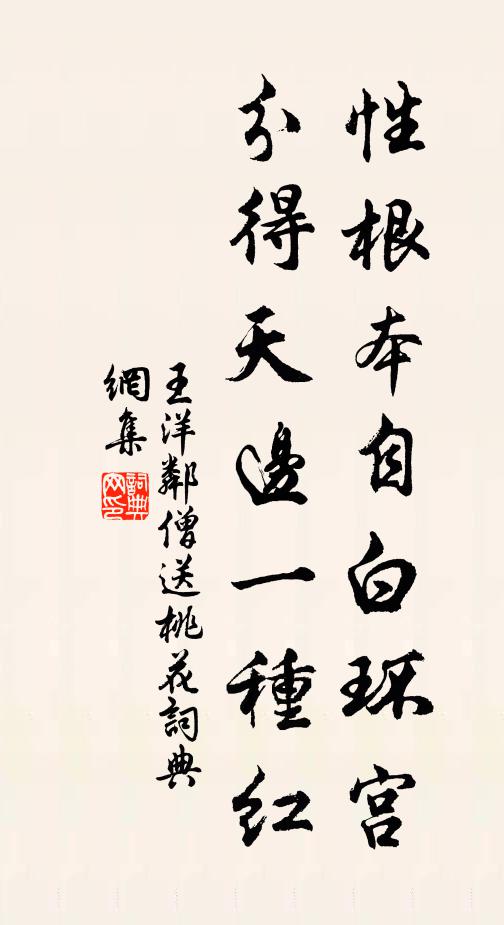 性根本自白环宫
分得天邊一種红
王洋鄰僧送桃花詞典
網集
詞典网印